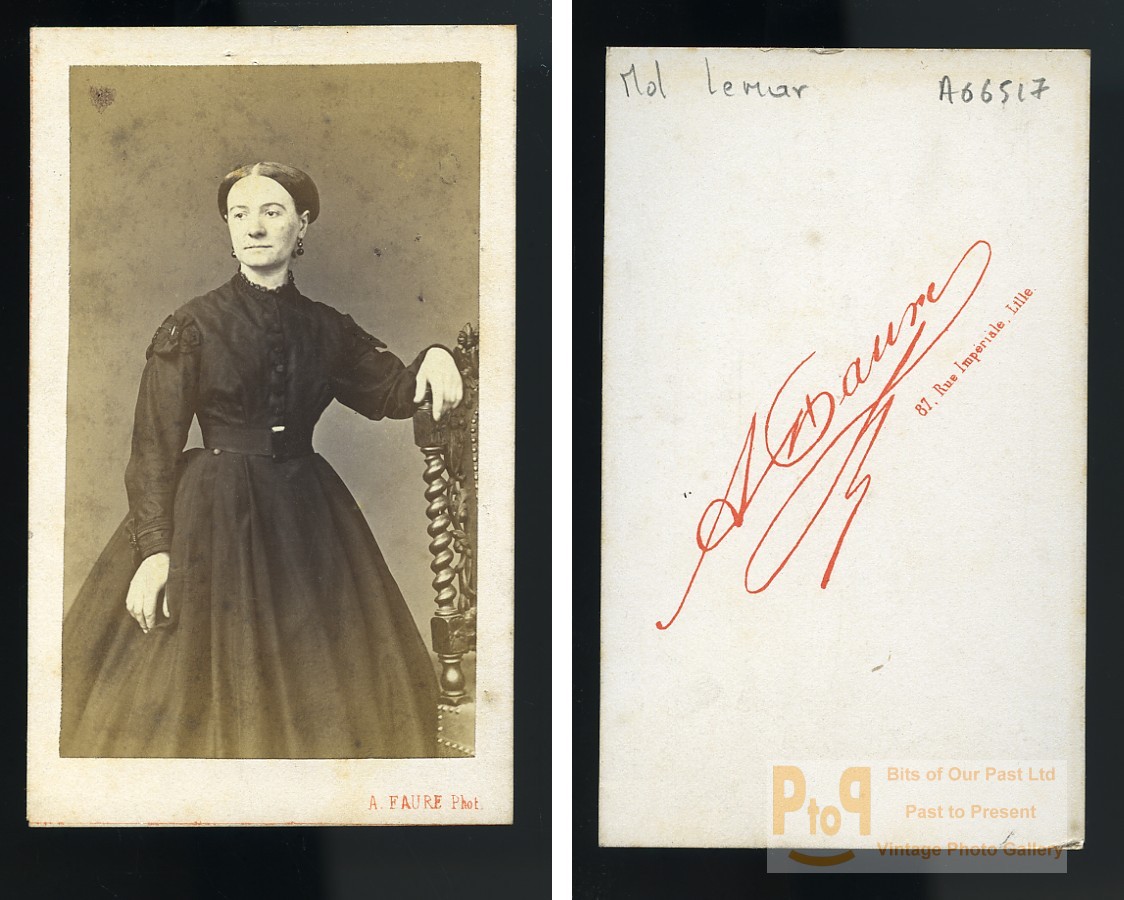 A. FAURE Phot.
Md Lemar
A66517
A Faure
87, Rue Impériale, Lille.
PtoP
Bits of Our Past Ltd
Past to Present
Vintage Photo Gallery